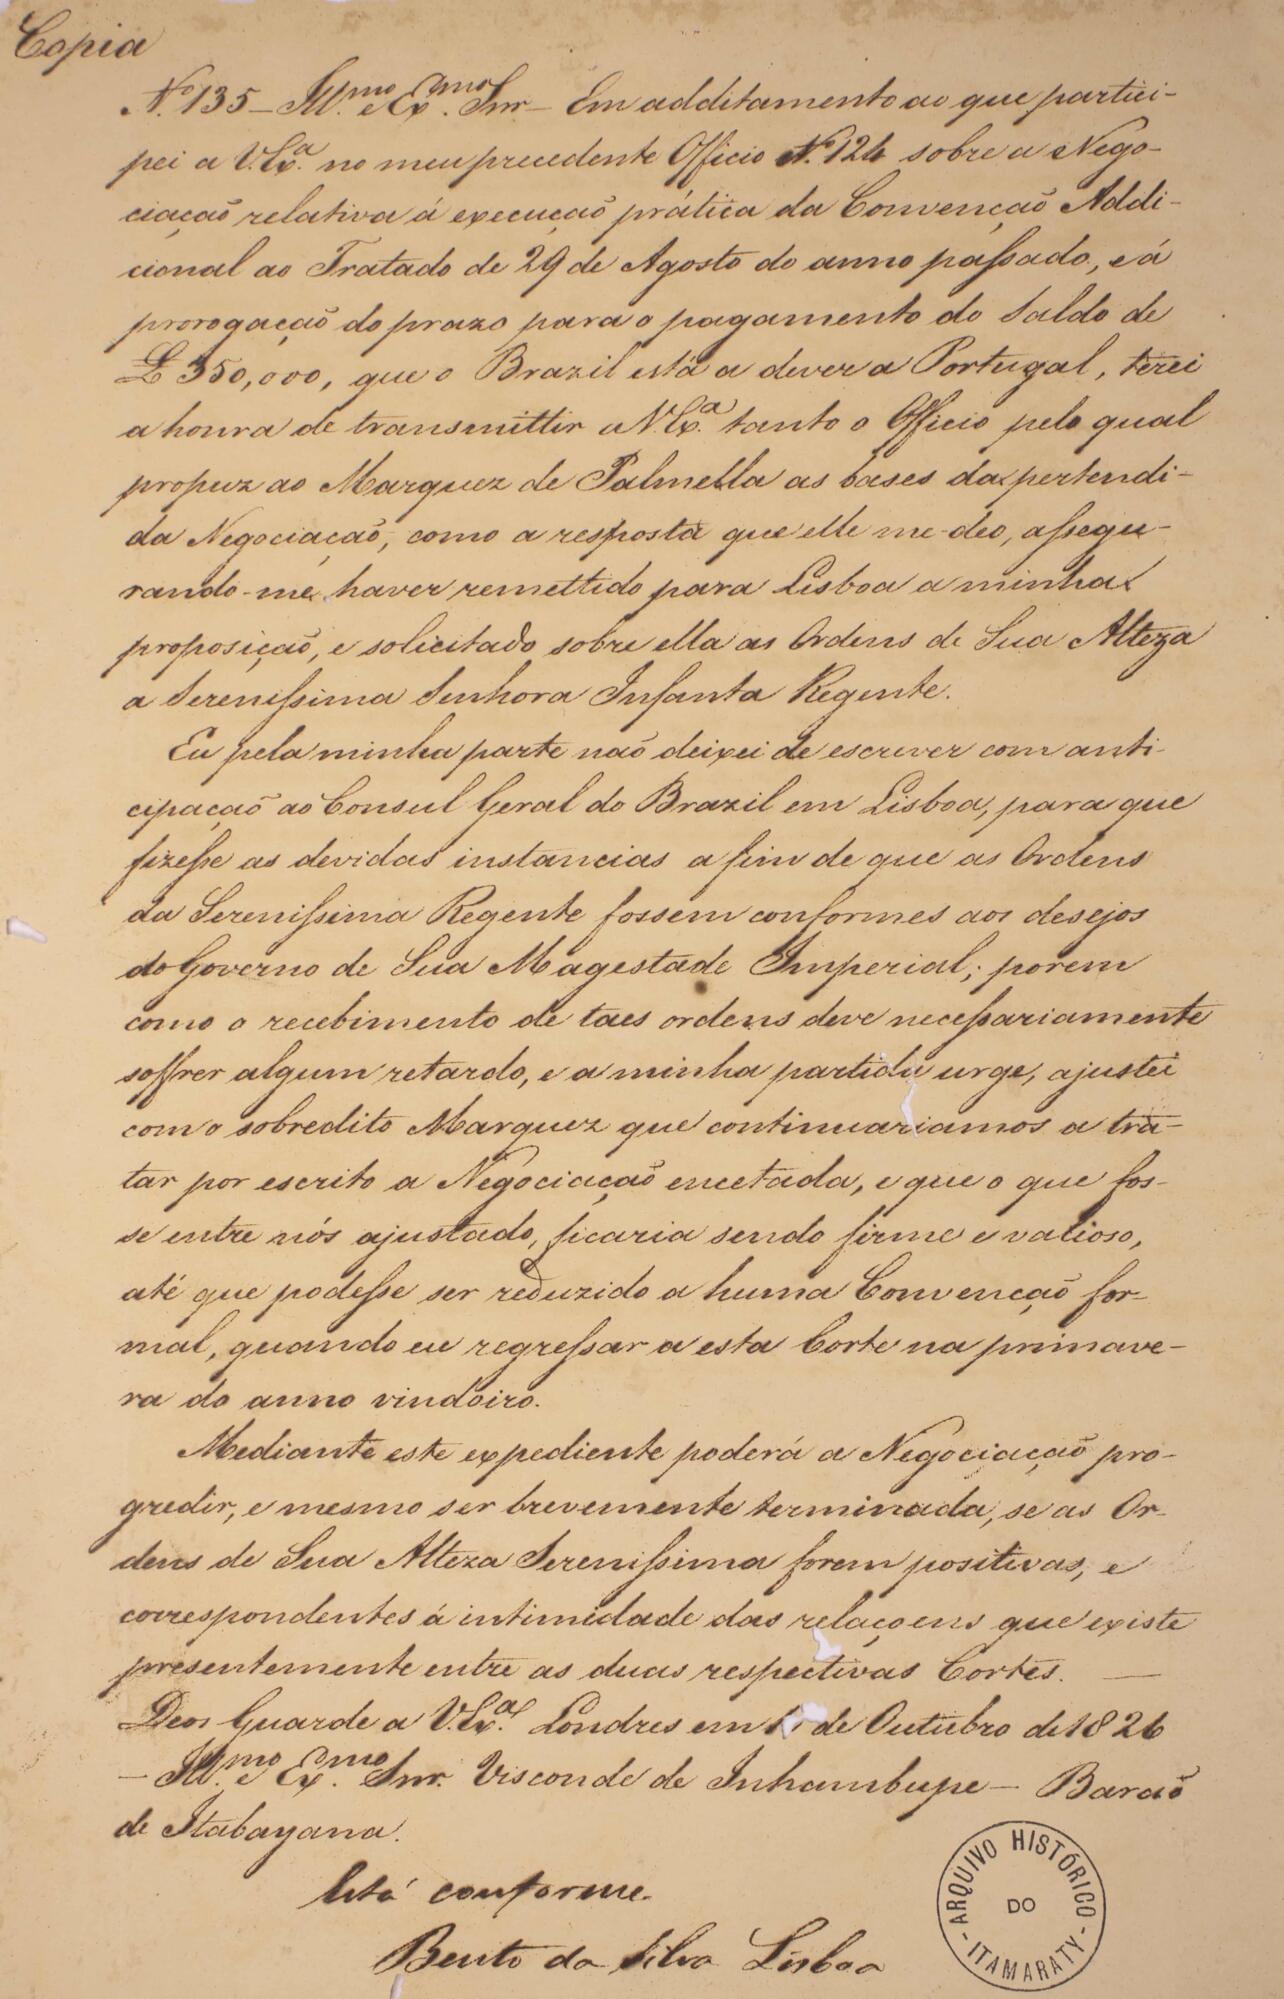 Copia
N.º 135 – Ill.mo e Ex.mo Snr – Em additamento ao que partici-
pei a V. Ex.a no meu precedente Officio N.º 124 sobre a Nego-
ciação relativa á execução prática da Convenção Addi-
cional ao Tratado de 29 de Agosto do anno passado, e á
prorogação do prazo para o pagamento do Saldo de
£ 350,000, que o Brazil está a dever a Portugal, terei
a honra de transmittir a V. Ex.a tanto o Officio pelo qual
propuz ao Marquez de Palmella as bases da pertendi-
da Negociação, como a resposta que elle me deo, assegu-
rando-me haver remettido para Lisboa a minha
proposição, e solicitado sobre ella as Ordens de Sua Alteza
a Serenissima Senhora Infanta Regente.
Eu pela minha parte naõ deixei de escrever com anti-
cipação ao Consul Geral do Brazil em Lisboa, para que
fizesse as devidas instancias a fim de que as Ordens
da Serenissima Regente fossem conformes aos desejos
do Governo de Sua Magestade Imperial; porem
como o recebimento de taes ordens deve necessariamente
soffrer algum retardo, e a minha partida urge, ajustei
com o sobredito Marquez que continuariamos a tra-
tar por escrito a Negociação encetada, e que o que fos-
se entre nós ajustado, ficaria sendo firme e valioso,
até que podesse ser reduzido a huma Convenção for-
mal, quando eu regressar a esta Corte na primave-
ra do anno vindoiro.
Mediante este expediente poderá a Negociação pro-
gredir, e mesmo ser brevemente terminada, se as Or-
dens de Sua Alteza Serenissima forem positivas, e
correspondentes á intimidade das relaçoens que existe
presentemente entre as duas respectivas Cortes. —
Deos Guarde a V. Ex.a Londres em de Outubro de 1826
– Ill.mo e Ex.mo Snr. Visconde de Inhambupe – Baraõ
de Itabayana.
Está conforme.
Bento da Silva Lisboa
ARQUIVO HISTÓRICO
DO
- ITAMARATY -